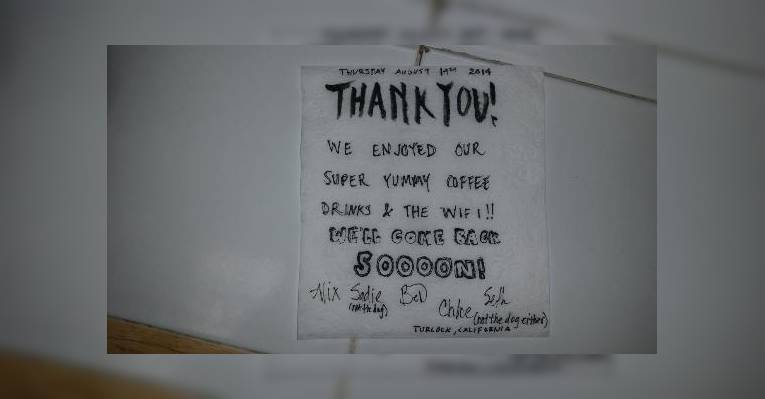 THURSDAY AUGUST 14TH 2014
THANK YOU!
WE ENJOYED OUR
SUPER YUMMY COFFEE
DRINKS & THE WIFI!!
WE'LL COME BACK
SOOOON!
Alix Sadie Bed Seth
(not the dog) Chloe (not the dog either)
TURLOCK, CALIFORNIA